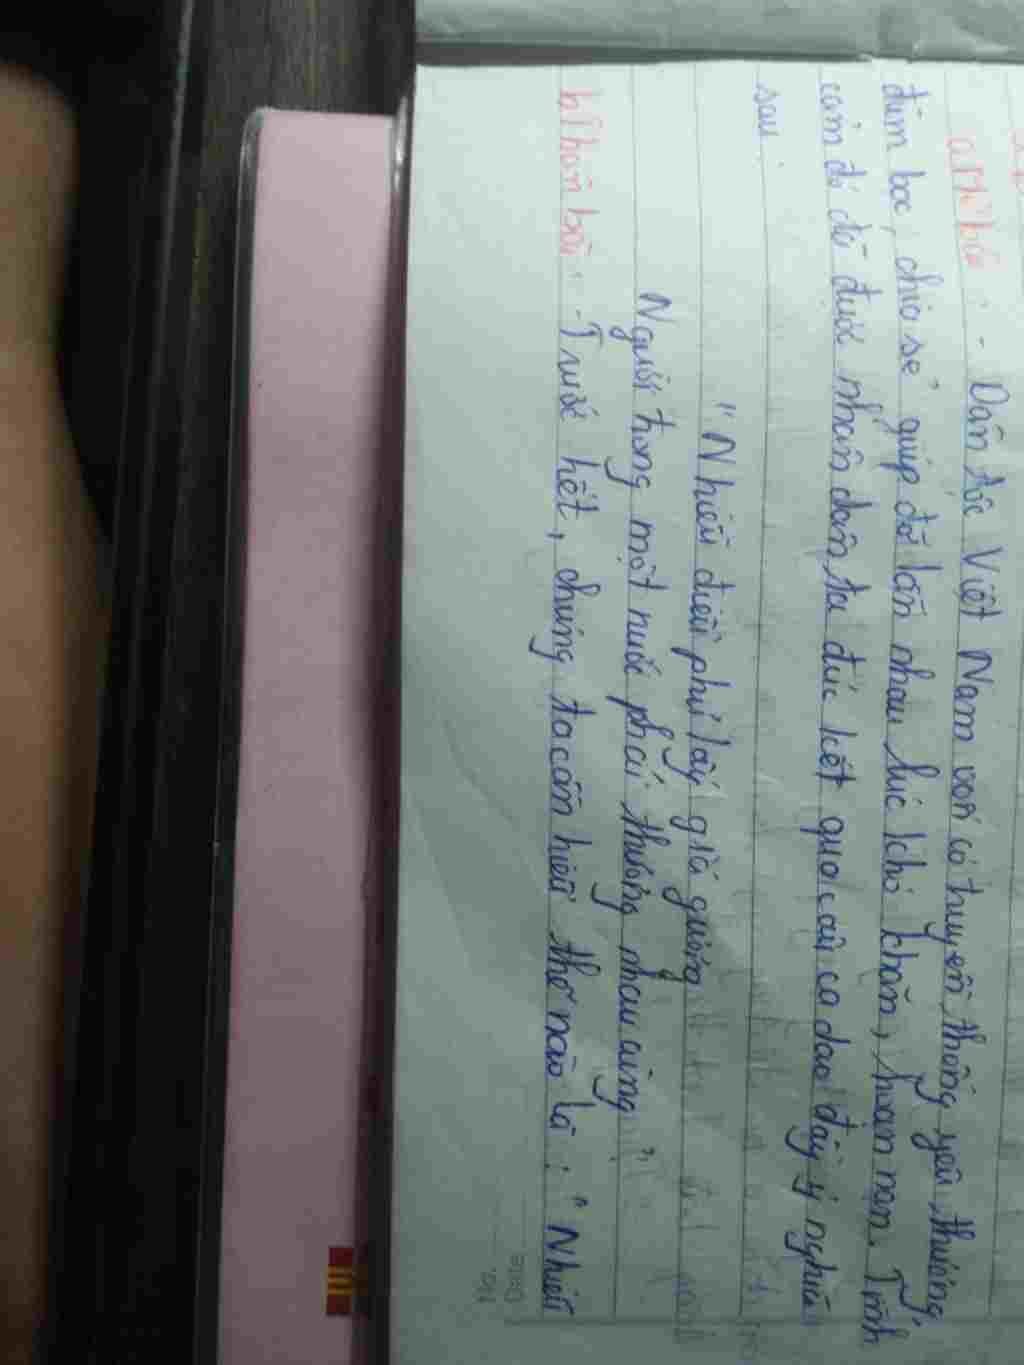 a) Mở bài : - Dân tộc Việt Nam vốn có truyền thống yêu thương,
đùm bọc, chia sẻ giúp đỡ lẫn nhau lúc khó khăn, hoạn nạn. Tình
cảm đó đã được nhân dân ta đúc kết qua câu ca dao đầy ý nghĩa
sau:
"Nhiễu điều phủ lấy giá gương
Người trong một nước phải thương nhau cùng"
b) Thân bài: - Trước hết, chúng ta cần hiểu thế nào là: "Nhiễu
No.
Date